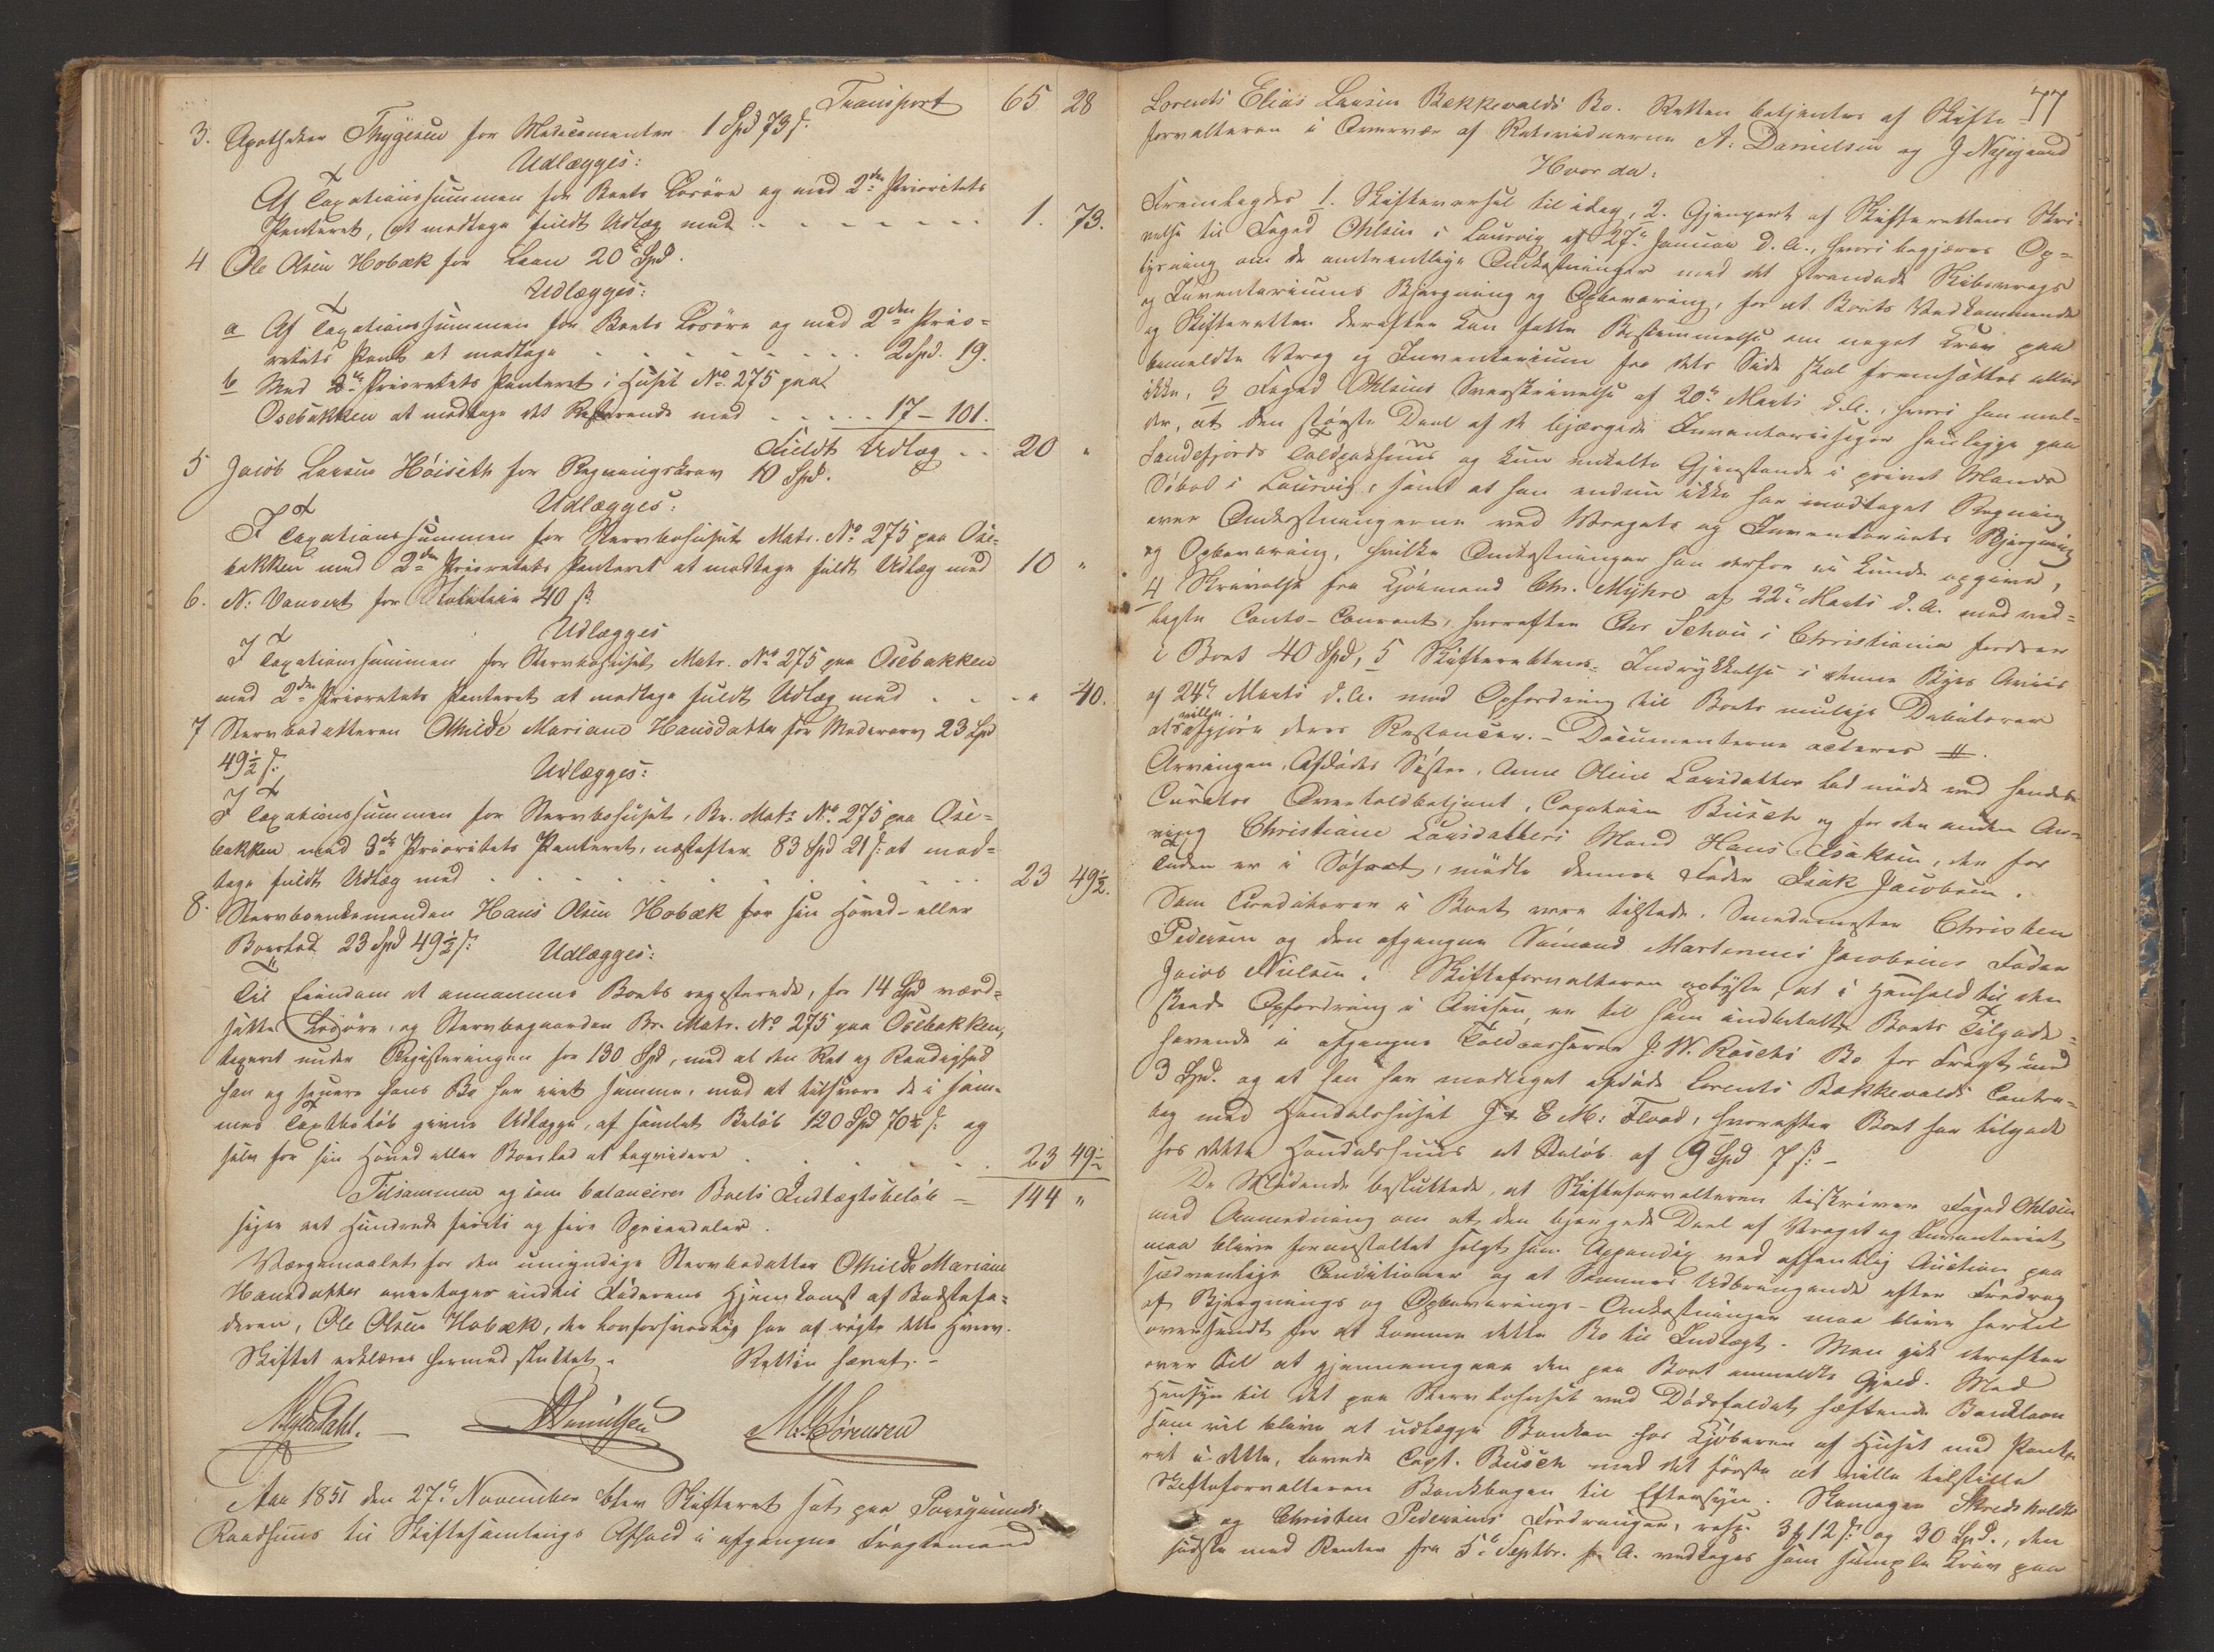 Transport 65 28
3. Apotheker Thygesen for Medicamenter 1 Spd 73 s.
Udlægges:
Af Taxationssummen for Boets Løsøre og med 2den Prioritets
Panteret, at modtage fuldt Udlæg med - - - - - - - 1. 73.
4 Ole Olsen Hobæk for Laan 20 Spd.
Udlægges:
a Af Taxationssummen for Boets Løsøre og med 2den Prio=
ritets Pant at modtage - - - - - - - 2 Spd. 19.
b Med 2den Prioritets Panteret i Huset No. 275 paa
Osebakken at modtage det Resterende med - - - - - 17 - 101.
Fuldt Udlæg - - 20 "
5 Jacob Larsen Höiseth for Regningskrav 10 Spd.
Udlægges:
I Taxationssummen for Stervbohuset Matr. No 275 paa Ose=
bakken med 2den Prioritets Panteret at modtage fuldt Udlæg med 10 "
6. N: Vauvert for 40 s
Udlægges
I Taxationssummen for Stervbohuset Matr. No 275 paa Osebakken
med 2den Prioritets Panteret at modtage fuldt Udlæg med - - - " 40.
7 Stervbodatteren Othilde Mariane Hansdatter for Mødrearv 23 Spd
49½ s:
Udlægges:
I Taxationssummen for Stervbohuset, Br. Matr No. 275 paa Ose=
bakken med 3die Prioritets Panteret, næstefter 83 Spd 21 s: at mod=
tage fuldt Udlæg med - - - - - - - 23 49½.
8. Stervboenkemanden Hans Olsen Hobæk for sin Hoved- eller
Boeslod 23 Spd 49½ s:
Udlægges:
Til Eiendom at annamme Boets registrerede, for 14 Spd værd=
satte Løsøre, og Stervbogaarden Br. Matr. No 275 paa Osebakken,
taxeret under Registreringen for 130 Spd, med al den Ret og Raadighed
han og hans Bo har eiet samme, mod at tilsvare de i sam=
mes Taxtbeløb givne Udlægge, af samlet Beløb 120 Spd 70½ s: og
selv for sin Hoved eller Boeslod at liqvidere - - - - 23 49½
Tilsammen og som balancerer Boets Indtægtsbeløb - 144 "
siger eet Hundrede firti og fire Speciedaler.
Værgemaalet for den umyndige Stervbodatter Othilde Mariane
Hansdatter overtages indtil Faderens Hjemkomst af Bedstefa=
deren, Ole Olsen Hobæk, der lovforsvarlig har at røgte dette Hverv.
Skiftet erklæres hermed sluttet. Retten hævet. -
M. Sørensen
Aar 1851 den 27de November blev Skifteret sat paa Porsgrunds
Raadhuus til Skiftesamlings Afhold i afgangne Fragtemand
77
Lorents Elias Larsen Bækkevolds Bo. Retten betjentes af Skifte
forvalteren i Overvær af Retsvidnerne A: Danielsen og J Nysgaard
Hvor da:
Fremlagdes 1. Skiftevarsel til idag, 2. Gjenpart af Skifterettens Skri=
velse til Foged Ohlsen i Laurvig af 27de Januar d. A., hvori begjæres Op=
lysning om de omtrentlige Omkostninger med det strandede Skibsvrags
og Inventariums Bjergning og Opbevaring, for at Boets Vedkommende
og Skifteretten derefter kan fatte Bestemmelse om noget Krav paa
bemeldte Vrag og Inventarium fra dets Side skal fremsættes eller
ikke, 3 Foged Ohlsens Svarskrivelse af 20de Marts d. A., hvori han mel=
der, at den største Deel af de bjærgede Inventariesager henligge paa
Sandefjords Toldpakhuus og kun enkelte Gjenstande i privat Mands
Söbod i Laurvig, samt at han endnu ikke har modtaget Regning
over Omkostningerne ved Vragets og Inventariets Bjergning
og Opbevaring, hvilke Omkostninger han derfor ei kunde opgive,
4 Skrivelse fra Kjöbmand Chr. Myhre af 22de Marts d. A. med ved=
lagte Conto-Courant, hvorefter Chr Schou i Christiania fordrer
i Boet 40 Spd, 5 Skifterettens Indrykkelse i denne Byes Aviis
af 24de Marts d. A. med Opfordring til Boets mulige Debitorer
at ville afgjöre deres Restancer. - Documenterne acteres #.
Arvingen, Afdødes Søster, Anne Oline Larsdatter lod møde ved hendes
Curator Overtoldbetjent, Capitain Busch og for den anden Ar=
ving Christiane Larsdatters Mand Hans Isaksen, der for
Tiden er i Søfart, mødte dennes Fader Isak Jacobsen.
Som Creditorer i Boet vare tilstede, Smedemester Christen
Pedersen og den afgangne Sömand Martinius Jacobsens Fader
Jacob Nielsen. Skifteforvalteren oplyste, at i Henhold til den
skeede Opfordring i Avisen, er til ham indbetalt Boets Tilgode=
havende i afgangne Toldcasserer J. W. Raschs Bo for Fragt med
3 Spd. og at han har modtaget afdøde Lorents Bækkevolds Contra=
bog med Handelshuset J & E M: Flood, hvorefter Boet har tilgode
hos dette Handelshuus et Beløb af 9 Spd 7 s: -
De Mødende besluttede, at Skifteforvalteren tilskriver Foged Ohlsen
med Anmodning om at den bjergede Deel af Vraget og Inventariet
maa blive foranstaltet solgt ved offentlig Auction paa
sædvanlige Conditioner og at Sammes Udbringende efter Fradrag
af Bjergnings og Opbevarings-Omkostninger maa blive hertil
oversendt for at komme dette Bo til Indtægt. Man gik derefter
over til at gjennemgaae den paa Boet anmeldte Gjæld. Med
Hensyn til det paa Stervbohuset ved Dødsfaldet hæftende Banklaan
som vil blive at udlægge Banken hos Kjøberen af Huset med Pante
ret i dette, lovede Capt. Busch med det første at ville tilstille
Skifteforvalteren Bankbogen til Eftersyn. Skomager Skredsholdts
og Christen Pedersens Fordringer, resp. 3 12 s: og 30 Spd., den
sidste med Renter fra 5te Septbr. f. A. vedtages som simple Krav paa